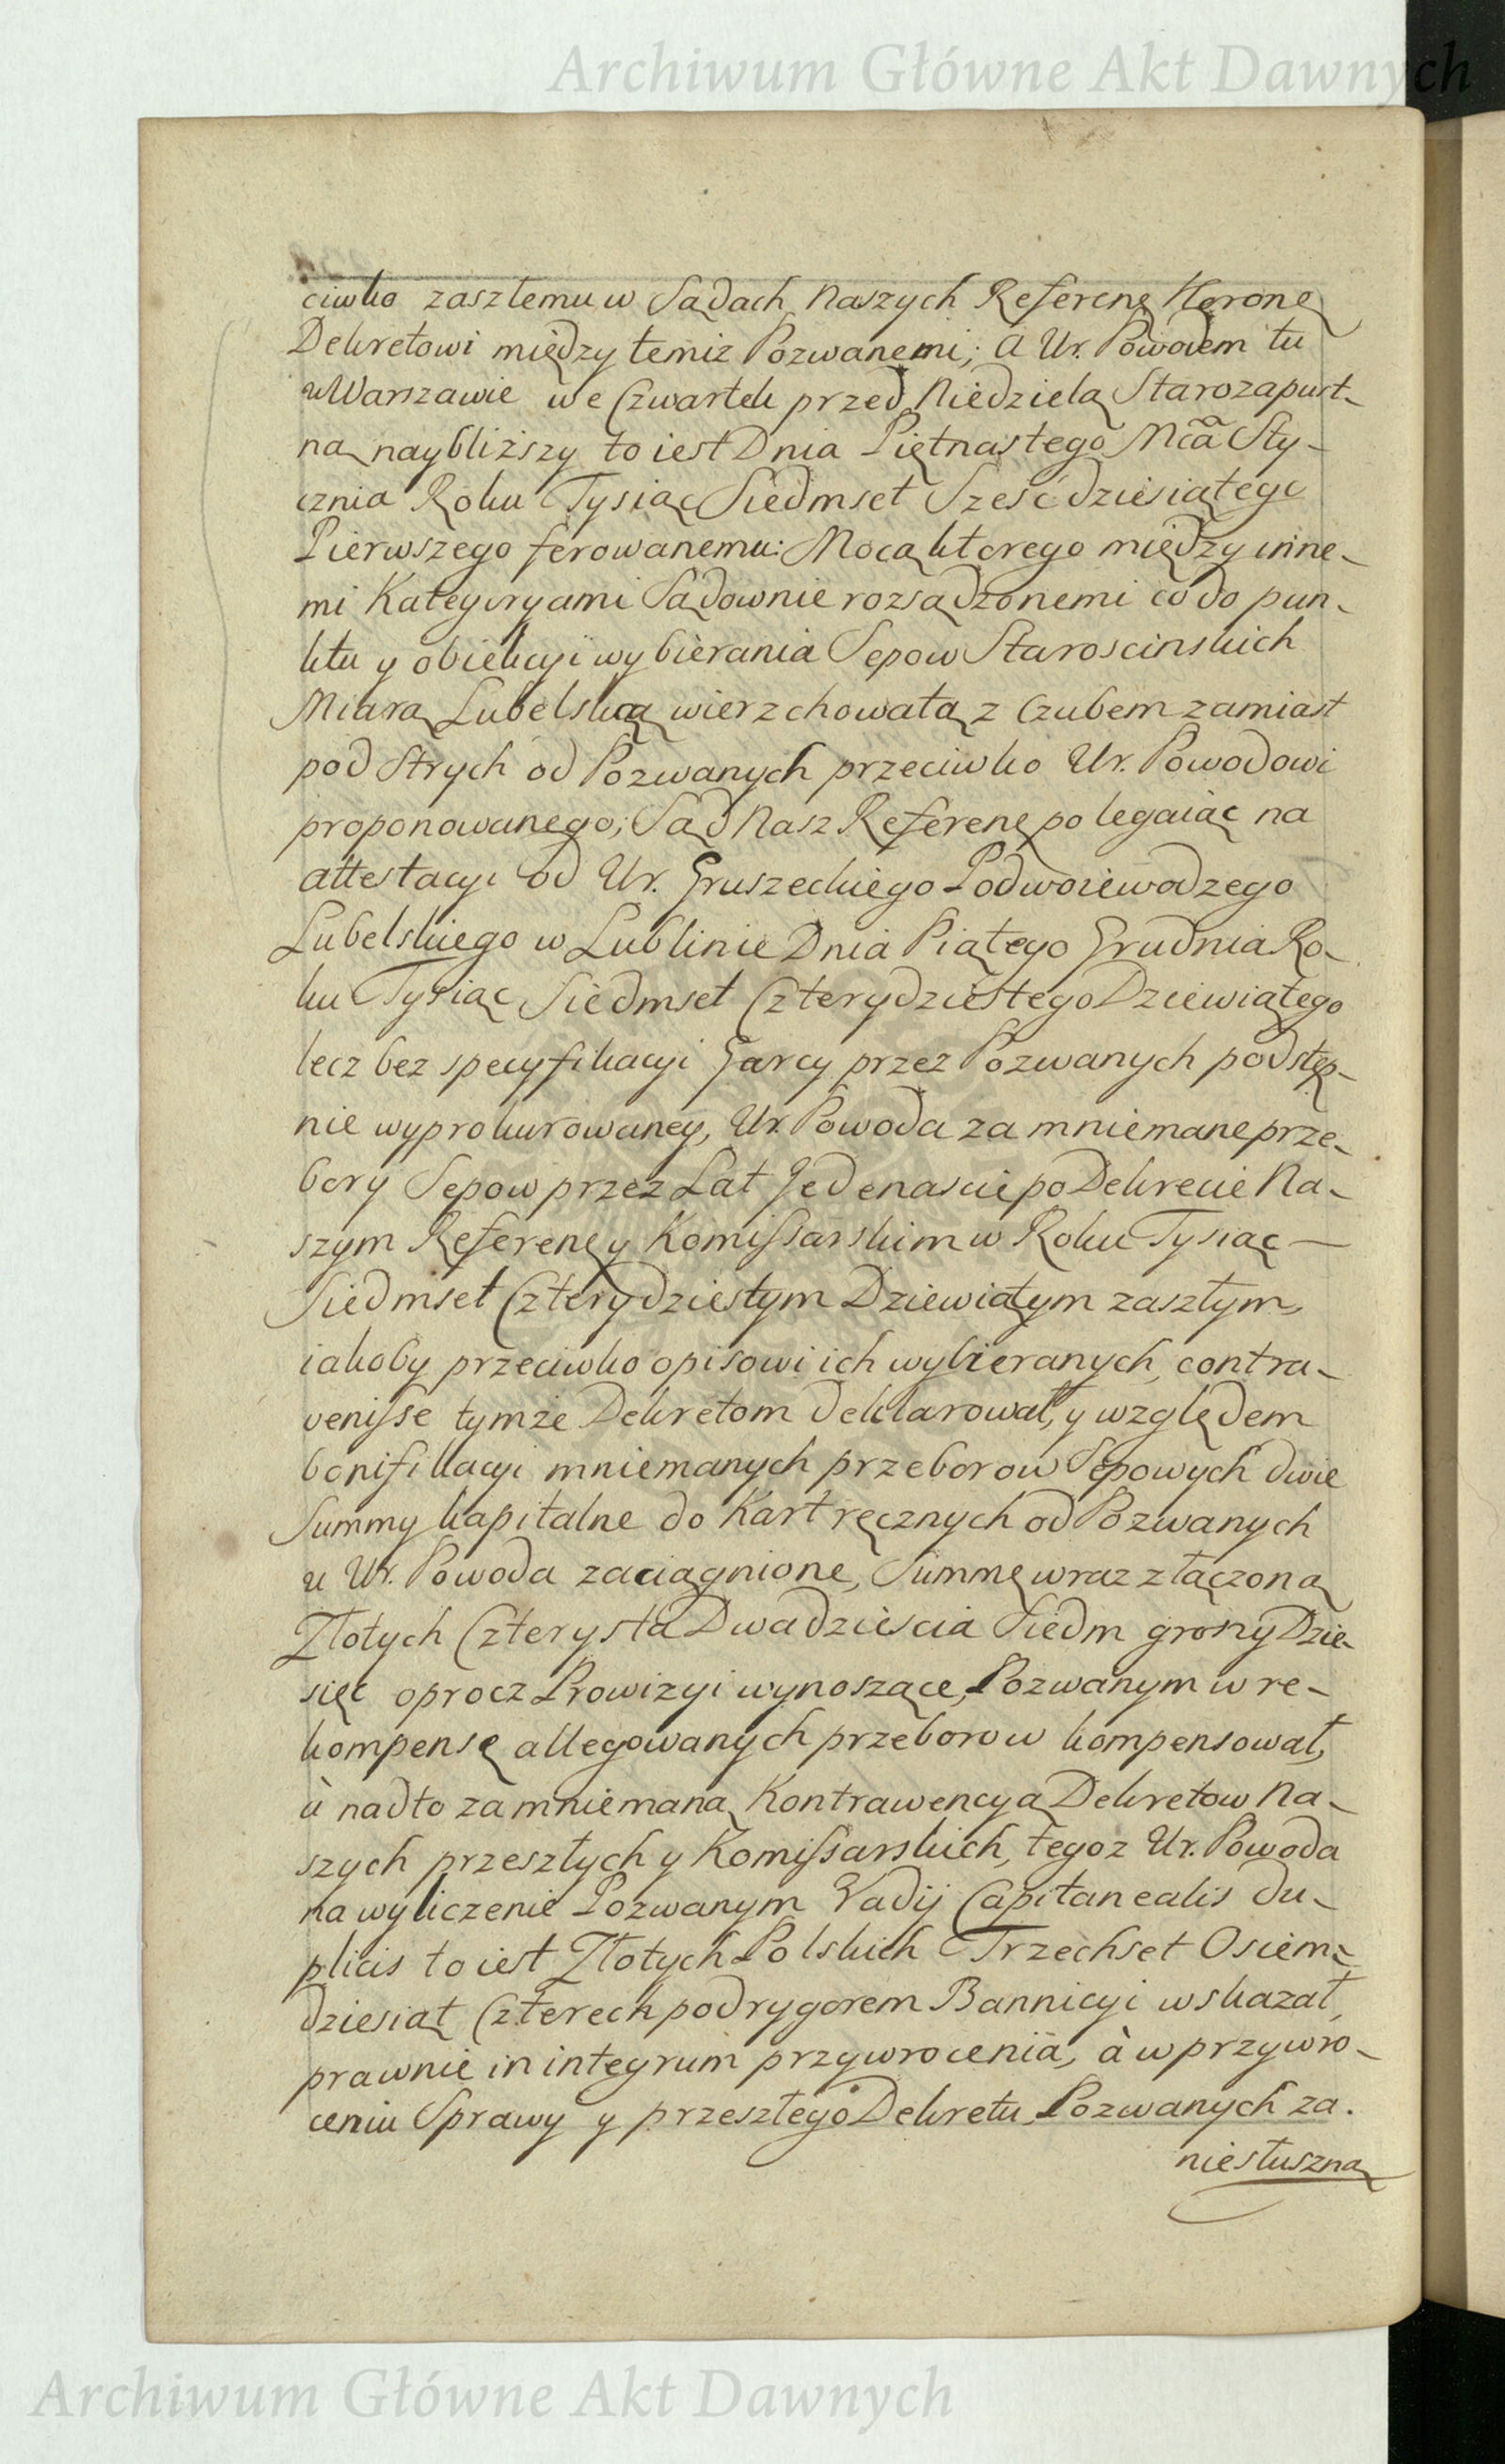 Archiwum Główne Akt Dawnych
ciwko zaszłemu w Sądach Naszych Referenę Koronę
Dekretowi między temiz Pozwanemi; à Ur. Powodem tu
w Warszawie we Czwartek przed Niedzielą Starozapust-
ną naybliższy to iest Dnia Piętnastego Mca Sty-
cznia Roku Tysiąc Siedmset Sześćdziesiątego
Pierwszego ferowanemu: Mocą ktorego między inne-
mi Kategoryami Sądownie rozsądzonemi co do pun-
ktu y obiekcyi wybierania Sepow Staroscinskich
Miarą Lubelską wierzchowatą z Czubem zamiast
pod Strych od Pozwanych przeciwko Ur. Powodowi
proponowanego; Sąd Nasz Referenę polegaiąc na
attestacyi od Ur. Gruszeckiego Podwoiewodzego
Lubelskiego w Lublinie Dnia Piątego Grudnia Ro-
ku Tysiąc Siedmset Czterydziestego Dziewiątego
lecz bez specyfikacyi Garcy przez Pozwanych podstęp-
nie wyprokurowaney, Ur. Powoda za mniemane prze-
bory Sepow przez Lat Jedenascie po Dekrecie Na-
szym Referenę y Komissarskim w Roku Tysiąc —
Siedmset Czterydziestym Dziewiątym zaszłym,
iakoby przeciwko opisowi ich wybieranych, contra-
venisse tymże Dekretom deklarował, y względem
bonifikacyi mniemanych przeborow Sepowych dwie
Summy kapitalne do Kart ręcznych od Pozwanych
u Ur. Powoda zaciągnione, Summę wraz złączoną
Złotych Czterysta Dwadzieścia Siedm groszy Dzie-
sięć oprocz Prowizyi wynoszące, Pozwanym w re-
kompensę allegowanych przeborow kompensował,
à nadto za mniemaną Kontrawencyą Dekretow Na-
szych przeszłych y Komissarskich, tegoz Ur. Powoda
na wyliczenie Pozwanym Vadij Capitanealis du-
plicis to iest Złotych Polskich Trzechset Osiem-
dziesiąt Czterech pod rygorem Bannicyi wskazał,
prawnie in integrum przywrocenia, à w przywro-
ceniu Sprawy y przeszłego Dekretu, Pozwanych za.
niesłuszną
Archiwum Główne Akt Dawnych